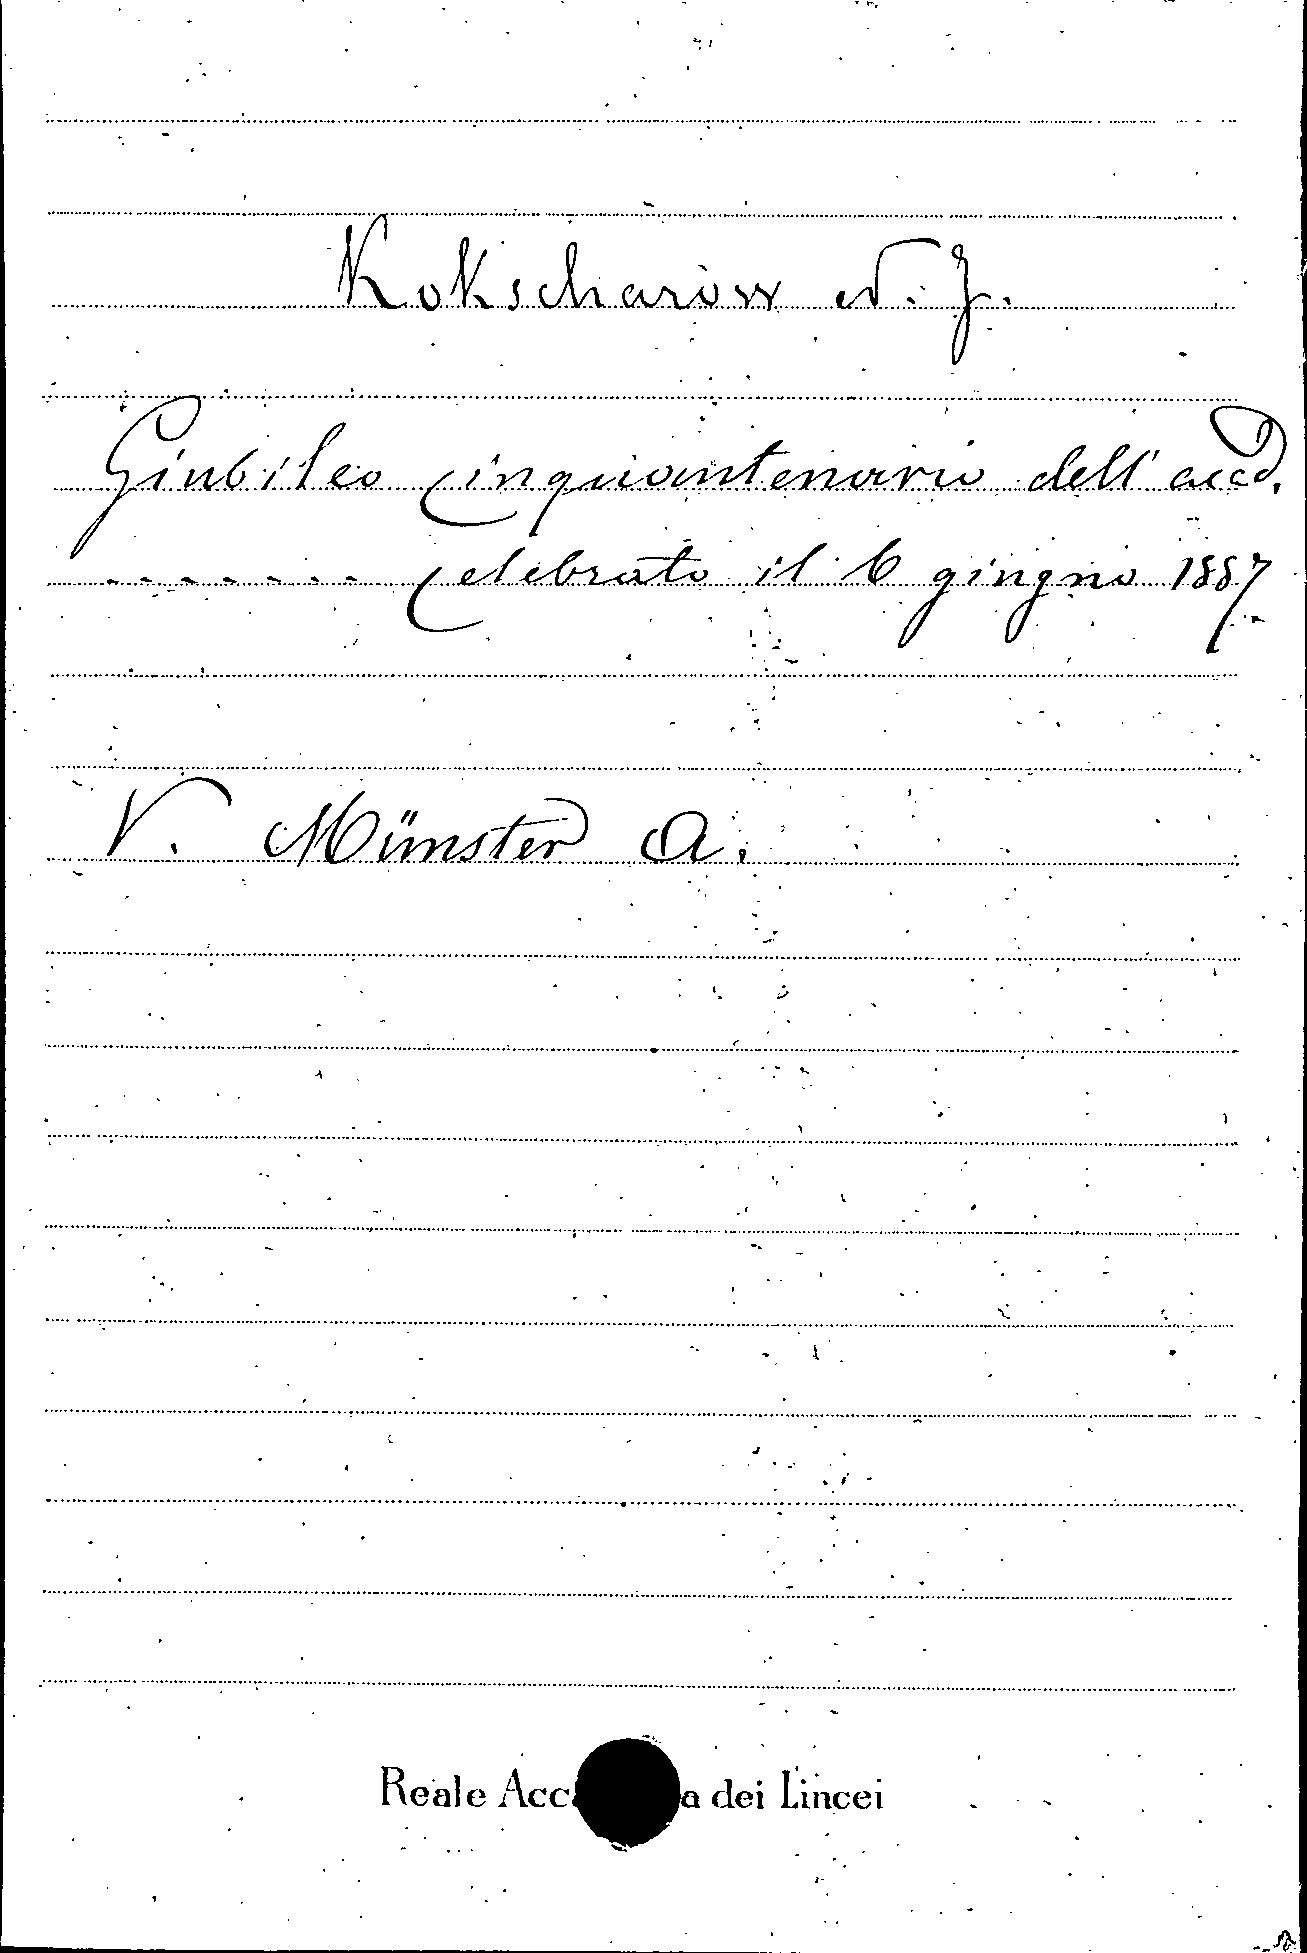 Kokscharow N. J.
Giubileo cinquantenario dell' accd.
------- celebrato il 6 giugno 1887
V. Münster A.
Reale Acc a dei Lincei